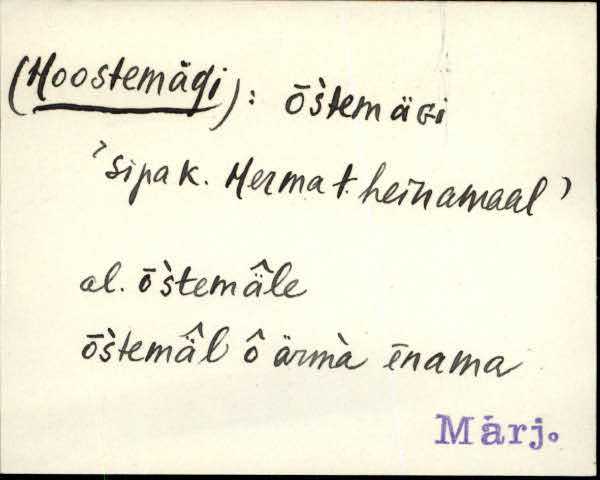 (Hoostemägi): ōs̀temäGi
'Sipa k. Herma t. heinamaal'
al. ōs̀temä̂le
ōs̀temä̂l ô ärmà ēnama
Märj.